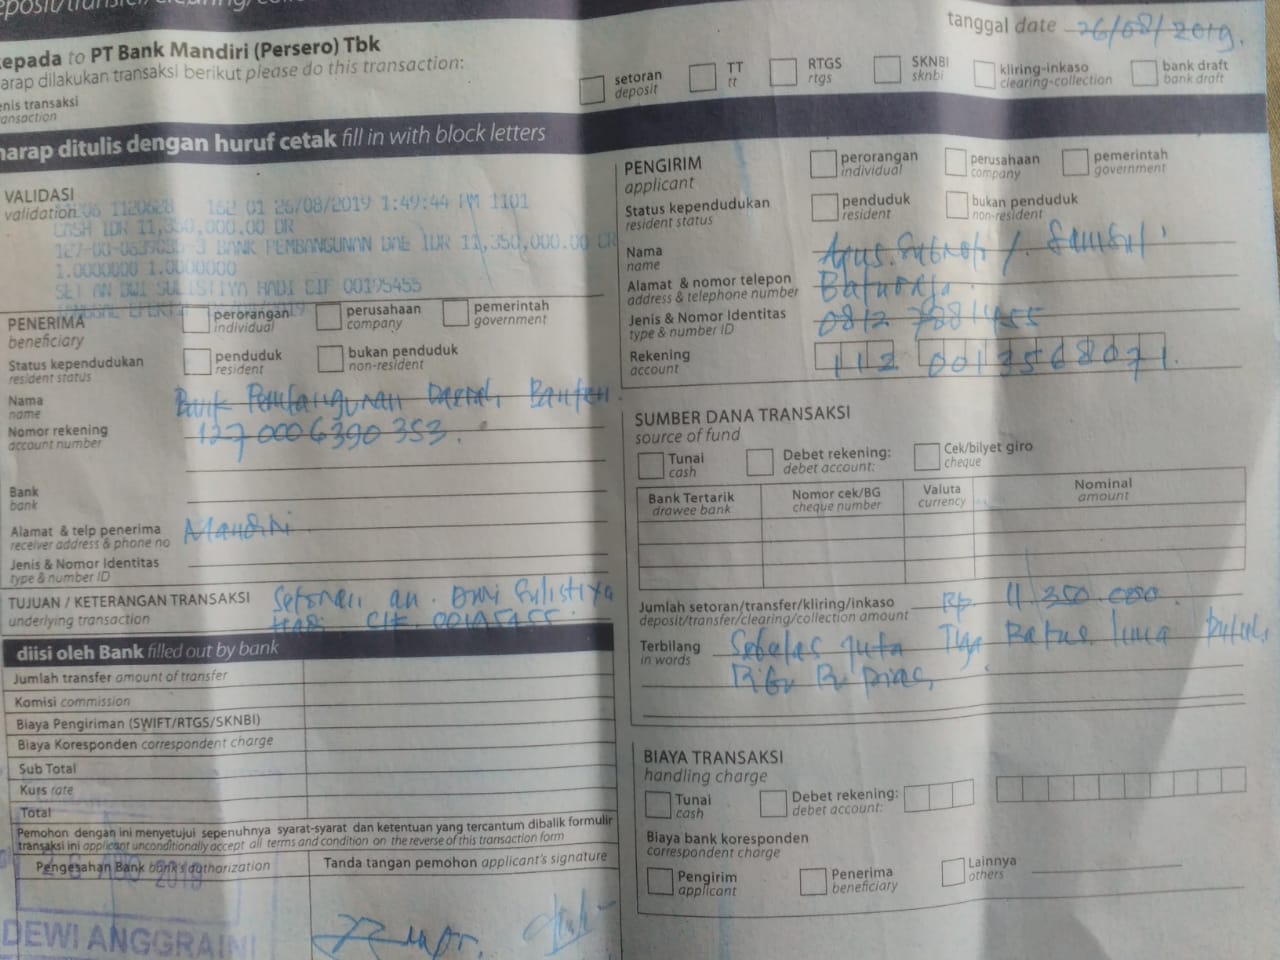 kepada to PT Bank Mandiri (Persero) Tbk
harap dilakukan transaksi berikut please do this transaction:
jenis transaksi
transaction
tanggal date 26/08/2019.
setoran
deposit
TT
tt
RTGS
rtgs
SKNBI
sknbi
kliring-inkaso
clearing-collection
bank draft
bank draft
harap ditulis dengan huruf cetak fill in with block letters
VALIDASI
validation
1120628 162 01 26/08/2019 1:49:44 PM 1101
CASH IDR 11,350,000.00 DR
BANK PEMBANGUNAN DAE IDR 11,350,000.00 CR
1.0000000 1.0000000
SET AN DWI SULISTIYA HADI CIF 00195455
PENERIMA
beneficiary
perorangan
individual
perusahaan
company
pemerintah
government
Status kependudukan
resident status
penduduk
resident
bukan penduduk
non-resident
Nama
name
Bank Pembangunan Daerah Banten
Nomor rekening
account number
127 000 6390 353.
Bank
bank
Alamat & telp penerima
receiver address & phone no
Mandiri
Jenis & Nomor Identitas
type & number ID
TUJUAN / KETERANGAN TRANSAKSI
underlying transaction
Setoran an. Dwi Sulistiya
Hadi CIF. 00195455
diisi oleh Bank filled out by bank
Jumlah transfer amount of transfer
Komisi commission
Biaya Pengiriman (SWIFT/RTGS/SKNBI)
Biaya Koresponden correspondent charge
Sub Total
Kurs rate
Total
Pemohon dengan ini menyetujui sepenuhnya syarat-syarat dan ketentuan yang tercantum dibalik formulir
transaksi ini applicant unconditionally accept all terms and condition on the reverse of this transaction form
Pengesahan Bank bank's authorization
Tanda tangan pemohon applicant's signature
DEWI ANGGRAINI
PENGIRIM
applicant
perorangan
individual
perusahaan
company
pemerintah
government
Status kependudukan
resident status
penduduk
resident
bukan penduduk
non-resident
Nama
name
Agus
Alamat & nomor telepon
address & telephone number
Baturaja
Jenis & Nomor Identitas
type & number ID
0812 7881455
Rekening
account
112 0013568071
SUMBER DANA TRANSAKSI
source of fund
Tunai
cash
Debet rekening:
debet account:
Cek/bilyet giro
cheque
Bank Tertarik
drawee bank
Nomor cek/BG
cheque number
Valuta
currency
Nominal
amount
Jumlah setoran/transfer/kliring/inkaso
deposit/transfer/clearing/collection amount
Rp 11.350.000.
Terbilang
in words
Sebelas juta Tiga Ratus lima puluh
Ribu Rupiah
BIAYA TRANSAKSI
handling charge
Tunai
cash
Debet rekening:
debet account:
Biaya bank koresponden
correspondent charge
Pengirim
applicant
Penerima
beneficiary
Lainnya
others